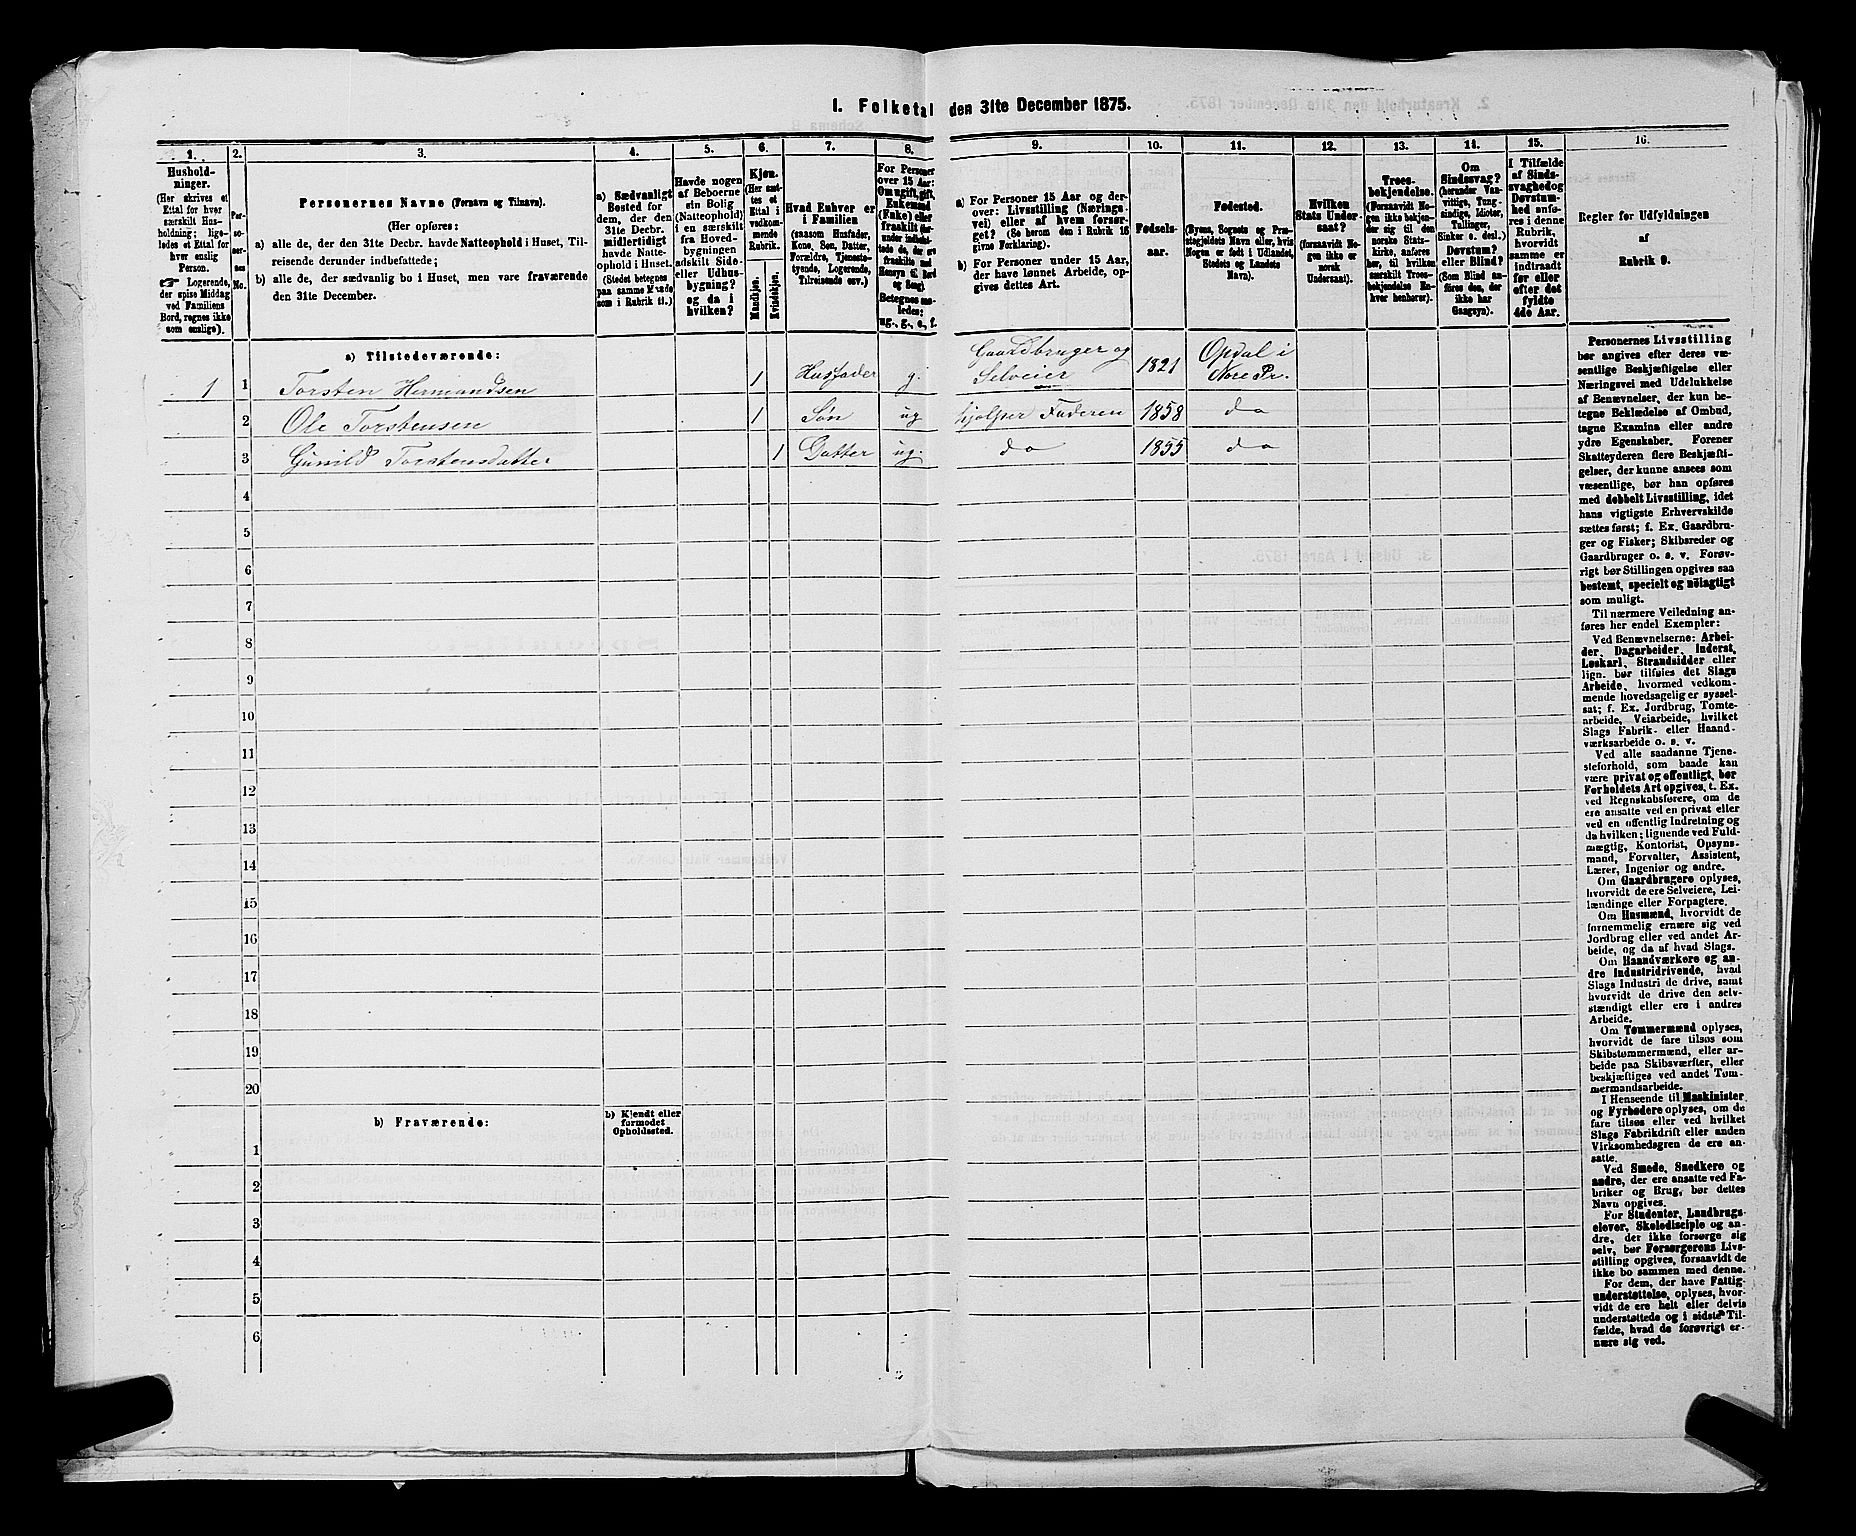 1. Folketal den 31te December 1875.
1.
2.
3.
4.
5.
6.
7.
8.
9.
10.
11.
12.
13.
14.
15.
16.
Hushold-
ninger.
(Her skrives et
Ettal for hver
særskilt Hus-
holdning; lige-
ledes et Ettal for
hver enslig
Person.
☛ Logerende,
der spise Middag
ved Familiens
Bord, regnes ikke
som enslige).
Per-
so-
ner-
nes
No.
Personernes Navne (Fornavn og Tilnavn).
(Her opføres:
a) alle de, der den 31te Decbr. havde Natteophold i Huset, Til-
reisende derunder indbefattede;
b) alle de, der sædvanlig bo i Huset, men vare fraværende
den 31te December.
a) Sædvanligt
Bosted for
dem, der den
31te Decbr.
midlertidigt
havde Natte-
ophold i Huset.
(Stedet betegnes
paa samme Maade
som i Rubrik 11.)
Havde nogen
af Beboerne
sin Bolig
(Natteophold)
i en særskilt
fra Hoved-
bygningen
adskilt Side-
eller Udhus-
bygning?
og da i
hvilken?
Kjøn.
(Her sæt-
tes et
Ettal i
vedkom-
mende
Rubrik.
Mandkjøn.
Kvindekjøn.
Hvad Enhver er
i Familien
(saasom Husfader,
Kone, Søn, Datter,
Forældre, Tjeneste-
tyende, Logerende,
Tilreisende osv.)
For Personer
over 15 Aar:
Om ugift, gift,
Enkemand
(Enke) eller
fraskilt
Betegnes saa-
ledes:
ug., g., e., f.
a) For Personer 15 Aar og der-
over: Livsstilling (Nærings-
vei) eller af hvem forsør-
get? (Se herom den i Rubrik 16
givne Forklaring).
b) For Personer under 15 Aar,
der have lønnet Arbeide, op-
gives dettes Art.
Fødsels-
aar.
Fødested.
(Byens, Sognets og Præ-
stegjeldets Navn eller, hvis
Nogen er født i Udlandet,
Stedets og Landets
Navn).
Hvilken
Stats Under-
saat?
(forsaavidt No-
gen ikke er
norsk
Undersaat).
Troes-
bekjendelse.
(Forsaavidt No-
gen ikke bekjen-
der sig til den
norske Stats-
kirke, anføres
her, til hvilken
særskilt Troes-
bekjendelse En-
hver henhører).
Om
Sindssvag?
(herunder Van-
vittige, Tung-
sindige, Idioter,
Tullinger,
Sinker o. desl.)
Døvstum?
eller Blind?
(Som Blind an-
føres den, der
ikke har
Gangsyn).
I Tilfælde
af Sinds-
svaghed og
Døvstum-
hed anfø-
res i denne
Rubrik,
hvorvidt
samme er
indtraadt
før eller
efter det
fyldte
4de Aar.
Regler for Udfyldningen
af
Rubrik 9.
a) Tilstedeværende:
1 1 Torsten Hermandsen 1 Husfader g. Gaardbruger og Selveier 1821 Opdal i Nore Pr.
2 Ole Torstensen 1 Søn ug hjælper Faderen 1858 do
3 Gunild Torstensdatter 1 Datter ug. do 1855 do
4
5
6
7
8
9
10
11
12
13
14
15
16
17
18
19
20
b) Fraværende:
b) Kjendt eller
formodet
Opholdssted.
1
2
3
4
5
6
Personernes Livsstilling
bør angives efter deres væ-
sentlige Beskjæftigelse eller
Næringsvei med Udelukkelse
af Benævnelser, der kun be-
tegne Beklædelse af Ombud,
tagne Examina eller andre
ydre Egenskaber. Forener
Skatteyderen flere Beskjæfti-
gelser, der kunne ansees som
væsentlige, bør han opføres
med dobbelt Livsstilling, idet
hans vigtigste Erhvervskilde
sættes først; f. Ex. Gaardbru-
ger og Fisker; Skibsreder og
Gaardbruger o. s. v. Forøv-
rigt bør Stillingen opgives saa
bestemt, specielt og nøiagtigt
som muligt.
Til nærmere Veiledning an-
føres her endel Exempler:
Ved Benævnelserne: Arbei-
der, Dagarbeider, Inderst,
Løskarl, Strandsidder eller
lign. bør tilføies det Slags
Arbeide, hvormed vedkom-
mende hovedsagelig er syssel-
sat; f. Ex. Jordbrug, Tomte-
arbeide, Veiarbeide, hvilket
Slags Fabrik- eller Haand-
værksarbeide o. s. v.
Ved alle saadanne Tjene-
steforhold, som baade kan
være privat og offentligt, bør
Forholdets Art opgives, t. Ex.
ved Regnskabsførere, om de
ere ansatte ved en privat eller
ved en offentlig Indretning og
da hvilken; lignende ved Fuld-
mægtig, Kontorist, Opsyns-
mand, Forvalter, Assistent,
Lærer, Ingeniør og andre.
Om Gaardbrugere oplyses,
hvorvidt de ere Selveiere, Lei-
lændinge eller Forpagtere.
Om Husmænd, hvorvidt de
fornemmelig ernære sig ved
Jordbrug eller ved andet Ar-
beide, og da af hvad Slags.
Om Haandværkere og an-
dre Industridrivende, hvad
Slags Industri de drive, samt
hvorvidt de drive den selv-
stændigt eller ere i andres
Arbeide.
Om Tømmermænd oplyses,
hvorvidt de fare tilsøs som
Skibstømmermænd, eller ar-
beide paa Skibsværfter, eller
beskjæftiges ved andet Tøm-
mermandsarbeide.
I Henseende til Maskinister
og Fyrbødere oplyses, om de
fare tilsøs eller ved hvilket
Slags Fabrikdrift eller anden
Virksomhedsgren de ere an-
satte.
Ved Smede, Snedkere og
andre, der ere ansatte ved Fa-
briker og Brug, bør dettes
Navn opgives.
For Studenter, Landbrugs-
elever, Skoledisciple og an-
dre, der ikke forsørge sig
selv, bør Forsørgerens Livs-
stilling opgives, forsaavidt de
ikke bo sammen med denne.
For dem, der have Fattig-
understøttelse, oplyses, hvor-
vidt de ere helt eller delvis
understøttede og i sidste Til-
fælde, hvad de forøvrigt er-
nære sig ved.